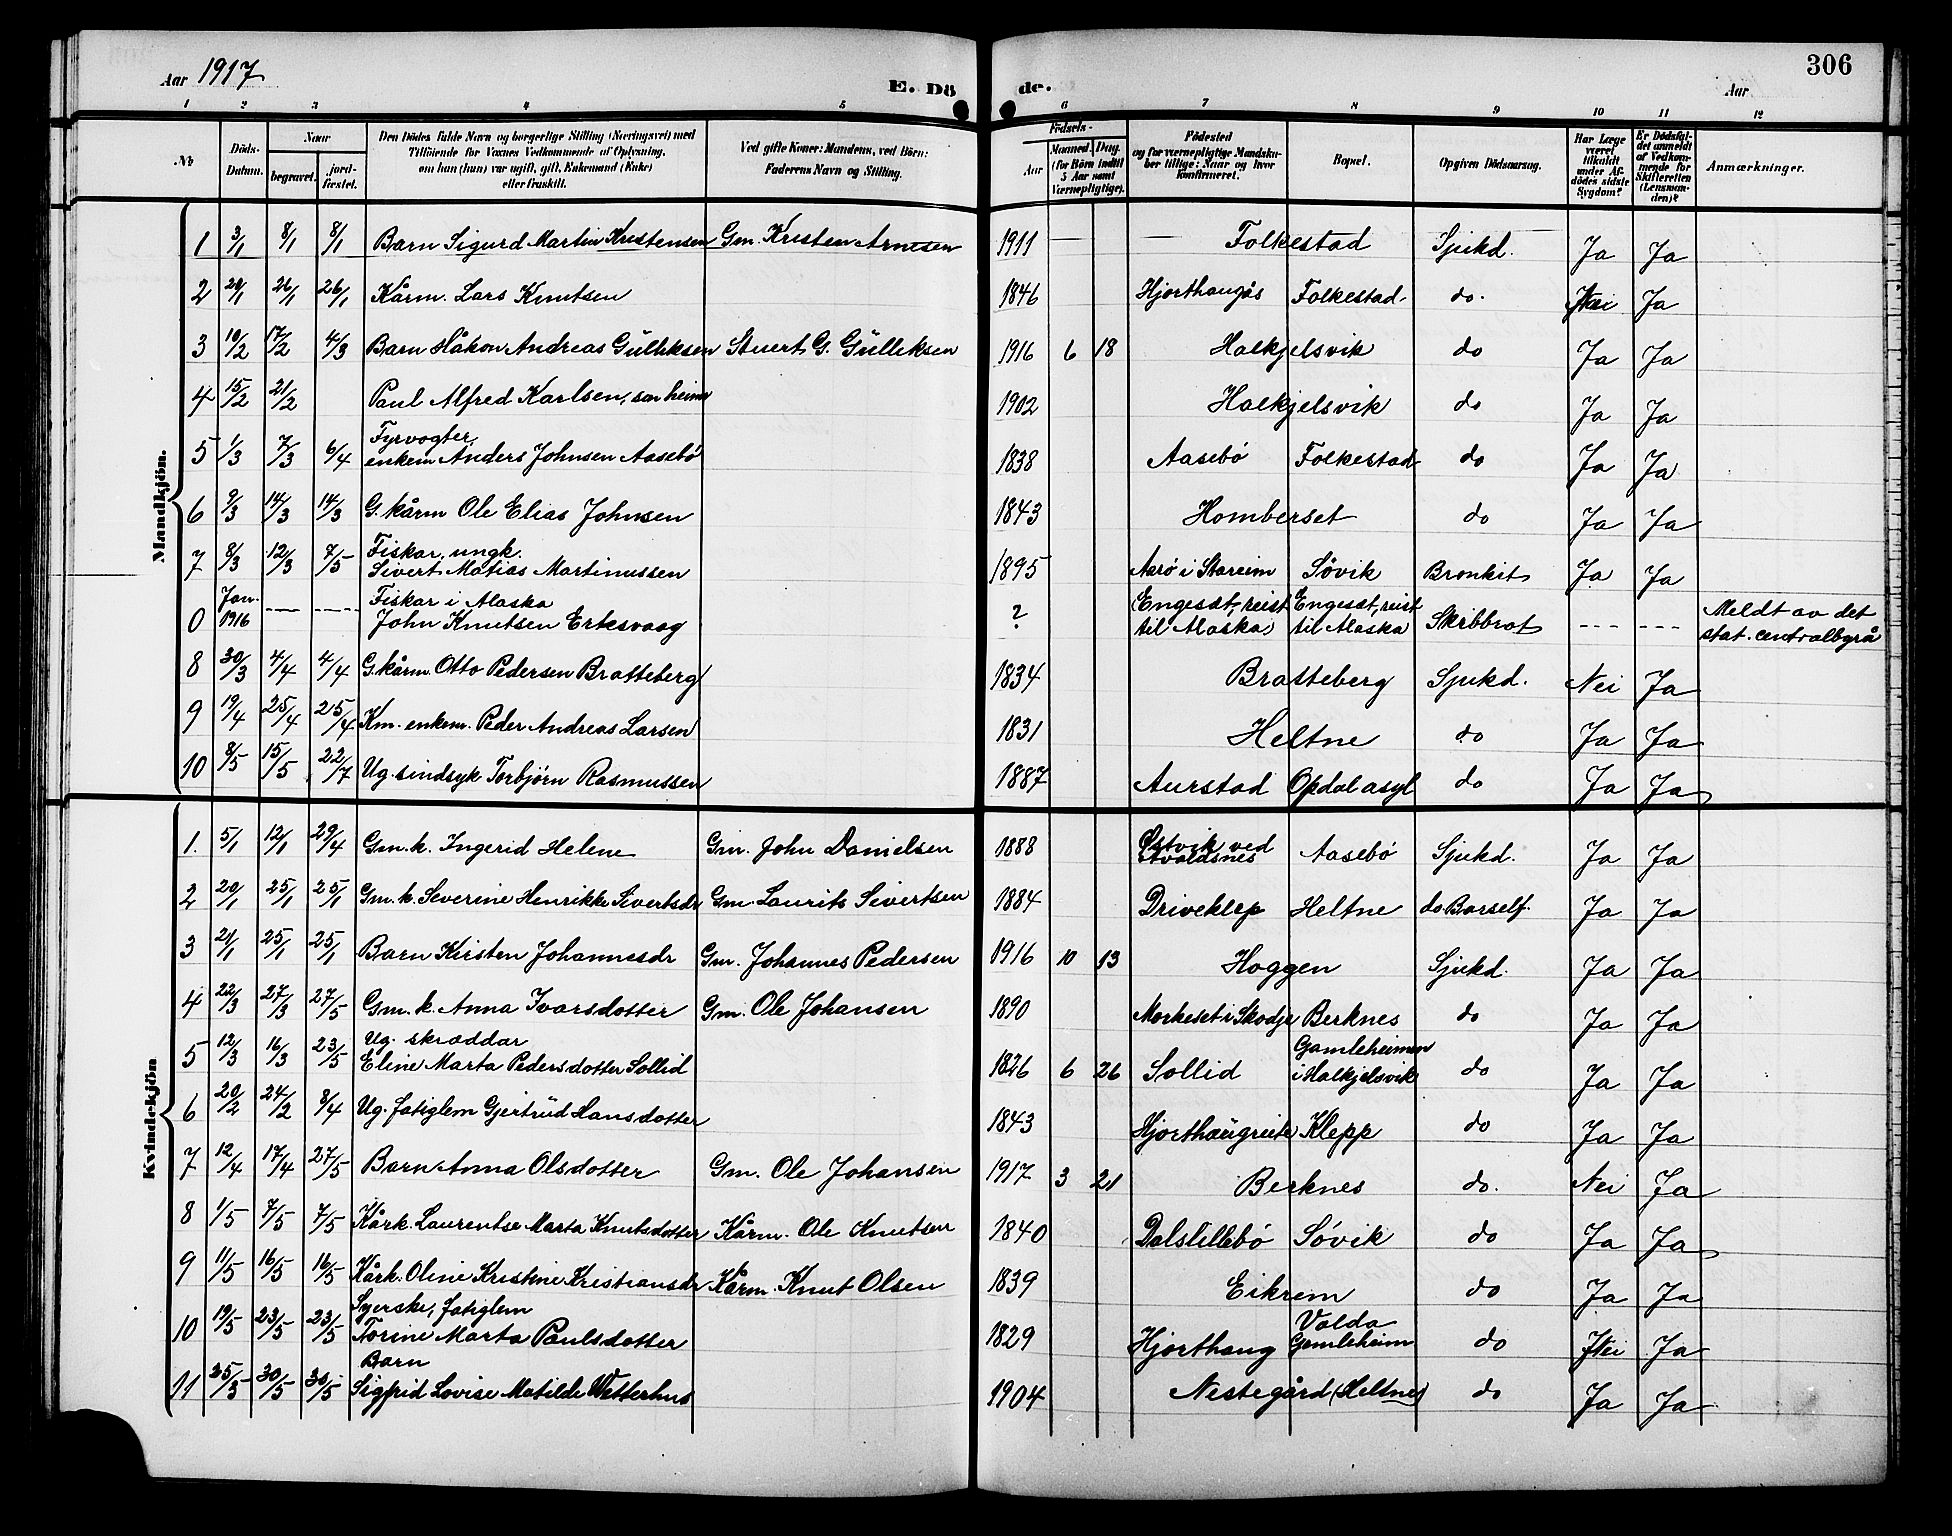 Aar 1917
E. Dö de.
Aar
306
1 2 3 4 5 6 7 8 9 10 11 12
No
Döds-Datum.
Naar
begravet. jord-fæstet.
Den Dödes fulde Navn og borgerlige Stilling (Næringsvei) med
Tilföiende for Voxnes Vedkommende af Oplysning,
om han (hun) var ugift, gift, Enkemand (Enke)
eller fraskilt.
Ved gifte Koner: Mandens, ved Börn:
Faderens Navn og Stilling.
Födsels-
Aar
Maaned. Dag.
(for Börn indtil
5 Aar samt
Værnepligtige).
Födested
og for værnepligtige Mandska-
ber tillige: Naar og hvor
konfirmeret.
Bopæl.
Opgiven Dödsaarsag.
Har Læge
været
tilkaldt
under Af-
dödes sidste
Sygdom?
Er Dödsfal-
det anmeldt
af Vedkom-
mende for
Skifteretten
(Lensman-
den)?
Anmærkninger.
Mandkjön.
1 3/1 8/1 8/1 Barn Sigurd Martin Kristensen Gm. Kristen Arnesen 1911 — — Folkestad Sjukd. Ja Ja
2 20/1 26/1 26/1 Kårm. Lars Knutsen 1846 Hjorthaugås Folkestad do. Nei Ja
3 10/2 17/2 4/3 Barn Håkon Andreas Gulliksen Stuert G. Gulliksen 1916 6 18 Halkjelsvik do Ja Ja
4 15/2 21/2 Paul Alfred Karlsen, son heime 1902 Halkjelsvik do Ja Ja
Fyrvogter,
5 1/3 7/3 6/4 enkem Anders Johnsen Aasebö 1838 Aasebö Folkestad do Ja Ja
6 9/3 14/3 14/3 G. kårm Ole Elias Johnsen 1843 Homberset do Ja Ja
Fiskar, ungk.
7 8/3 12/3 7/5 Sivert Matias Martinussen 1895 Aarö i Stareim Sövik Bronkit Ja Ja
Jan. Fiskar i Alaska Engeset, reist Engeset, reist Meldt av det
0 1916 --- ---- John Knutsen Eriksvaag ? til Alaska til Alaska Skibbrot --- --- stat. centralbyrå
8 30/3 4/4 4/4 G. kårm. Otto Pedersen Bratteberg 1834 Bratteberg Sjukd. Nei Ja
9 19/4 25/4 25/4 Km. enkem. Peder Andreas Larsen 1831 Heltne do Ja Ja
10 8/5 15/5 22/7 Ug. sindsyk Torbjörn Rasmussen 1887 Aurstad Opdal asyl do Ja Ja
Kvindekjön
1. 5/1 12/1 29/4 Gm. k. Ingerid Helene Gm. John Danielsen 1888 Östvik ved Avaldsnes Aasebö Sjukd. Ja Ja
2 20/1 25/1 25/1 Gm. k. Severine Henrikke Sivertsdr Gm. Laurits Sivertsen 1884 Driveklep Heltne do Barself. Ja Ja
3 21/1 25/1 25/1 Barn Kirsten Johannesdr Gm. Johannes Pedersen 1916 10 13 Haggen Sjukd. Ja Ja
4 22/3 27/3 27/5 Gm. k. Anna Ivarsdotter Gm. Ole Johansen 1890 Morkeset i Skodje Berknes do Ja Ja
Ug. skræddar Gamleheimen
5 12/3 16/3 23/5 Eline Marta Pedersdotter Sollid 1826 6 26 Sollid i Halkjelsvik do Ja Ja
6 20/2 24/2 8/4 Ug. fatiglem Gjertrud Hansdotter 1843 Klepp do Ja Ja
7 12/4 17/4 27/5 Barn Anna Olsdotter Gm. Ole Johansen 1917 3 21 Berknes do. Nei Ja
8 1/5 7/5 7/5 Kårk. Laurentse Marta Knutsdotter Kårm. Ole Knutsen 1840 Dalslillebö Sövik do Ja Ja
9 11/5 16/5 16/5 Kårk. Oline Kristine Kristiansdr Kårm. Knut Olsen 1839 Eikrem do Ja Ja
Syerske, fatiglem Volda
10 19/5 23/5 23/5 Torine Marta Paulsdotter 1829 Hjorthaug Gamleheim do Nei Ja
Barn
11 25/5 30/5 30/5 Sigfrid Lovise Matilde Wetterhus 1904 Nestegård (Heltne) do Ja Ja